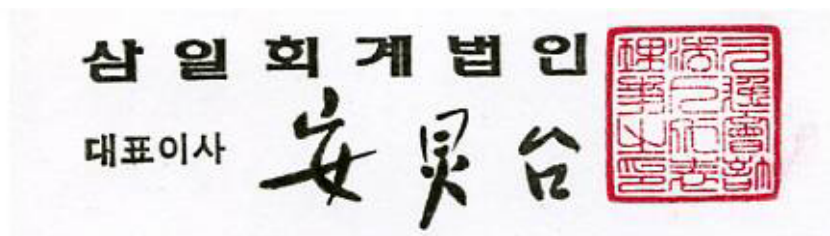 삼 일 회 계 법 인
대표이사 安 炅 台